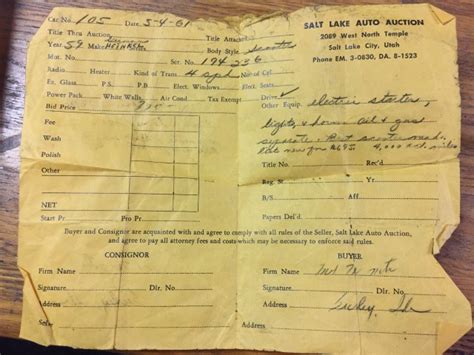 Car No. 105 Date 5-4-61
SALT LAKE AUTO AUCTION
2089 West North Temple
Salt Lake City, Utah
Phone EM. 3-0830, DA. 8-1523
Title Thru Auction Title Attached
Year 59 Make HEINKEL Body Style Scooter
Mot. No. Ser. No. 194236
Radio Heater Kind of Trans 4 spd No. of Cyl
Ex. Glass P.S. P.B. Elect. Windows Elect. Seats
Power Pack White Walls Air Cond Tax Exempt Drive
Bid Price
Other Equip. electric starter,
lights & horn oil & gas
separate. Best scooter made.
4,000 act. miles
Fee
Wash
Polish
Other
NET
Start Pr Pro. No.
Title No. Rec'd
Reg. St Yr.
B/S A/F
Papers Del'd
Buyer and Consignor are acquainted with and agree to comply with all rules of the Seller, Salt Lake Auto Auction,
and agree to pay all attorney fees and costs which may be necessary to enforce said rules.
CONSIGNOR BUYER
Firm Name Firm Name
Signature Signature
Dlr. No. Dlr. No.
Address Address
Sold